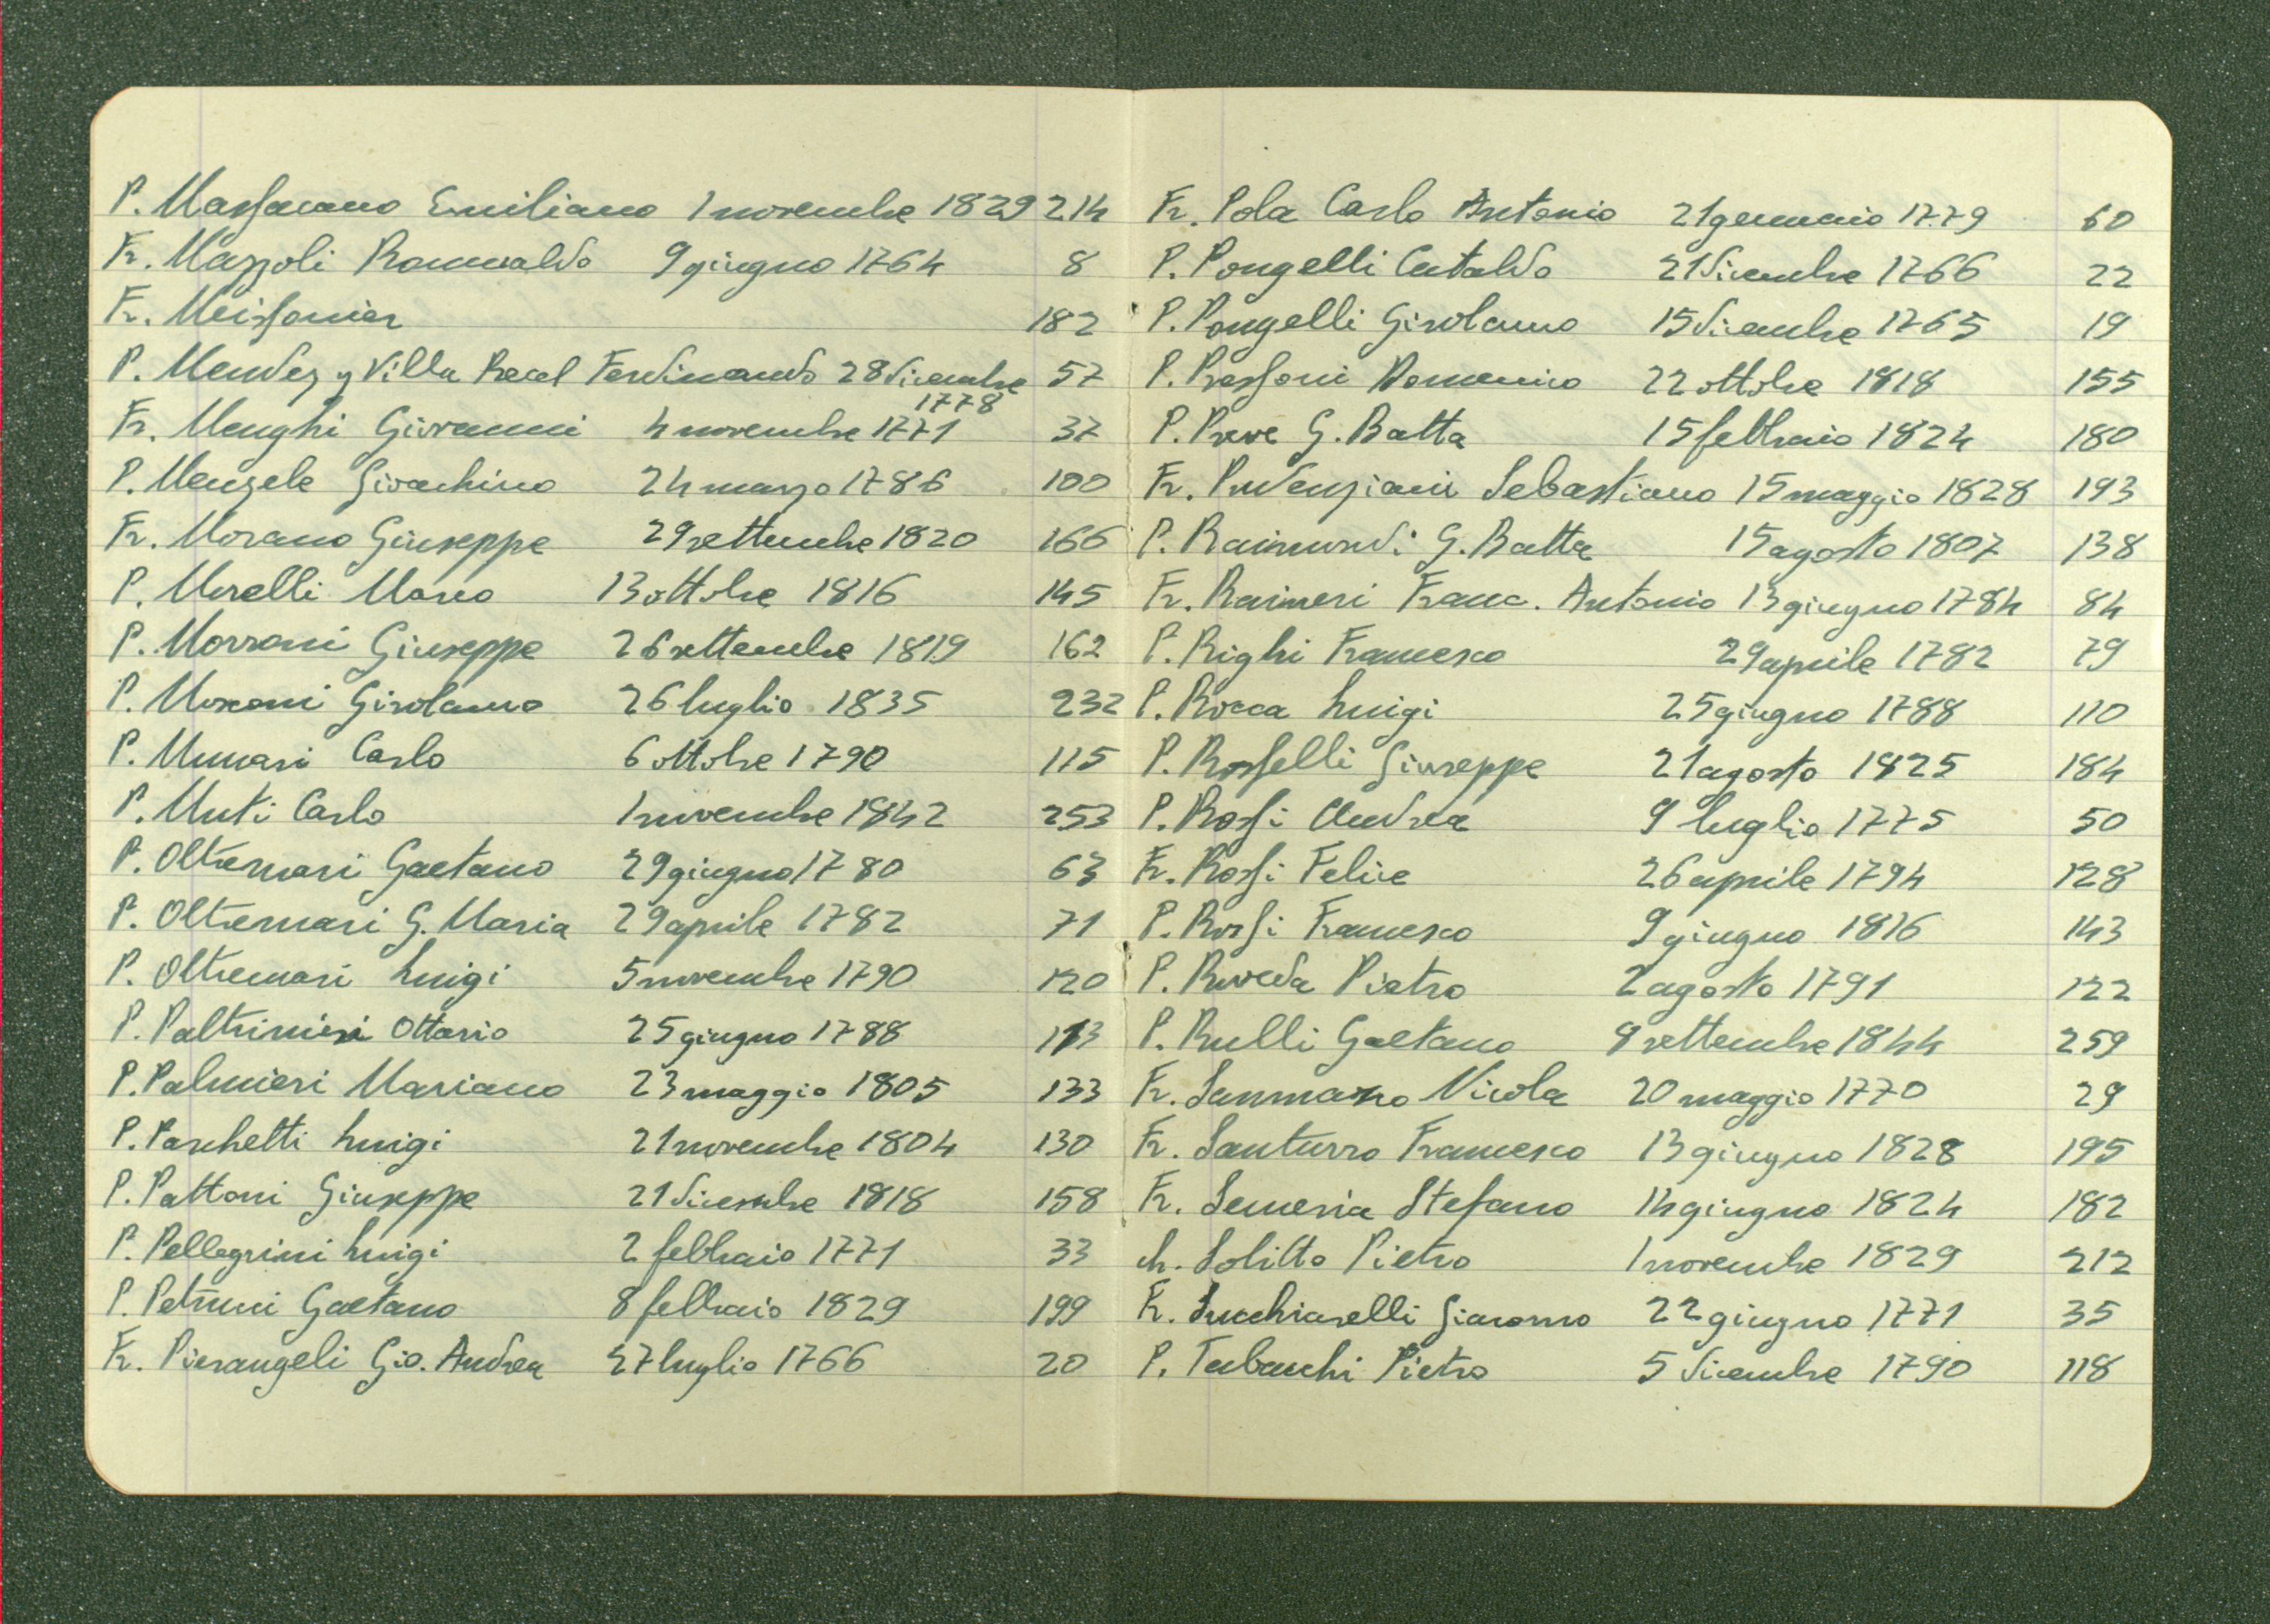 P. Massacano Emiliano 1 novembre 1829 214
Fr. Mazzoli Romualdo 9 giugno 1764 8
Fr. Meissonier 182
P. Mendez y Villa Recel Ferdinando 28 dicembre 57
1778
Fr. Menghi Giovanni 4 novembre 1771 37
P. Menzele Gioachino 24 marzo 1786 100
Fr. Morano Giuseppe 29 settembre 1820 166
P. Morelli Marco 13 ottobre 1816 145
P. Morroni Giuseppe 26 settembre 1819 162
P. Moroni Girolamo 26 luglio 1835 232
P. Munari Carlo 6 ottobre 1790 115
P. Muti Carlo 1 novembre 1842 253
P. Oltremari Gaetano 29 giugno 1780 63
P. Oltremari G. Maria 29 aprile 1782 71
P. Oltremari Luigi 5 novembre 1790 120
P. Paltrinieri Ottavio 25 giugno 1788 113
P. Palmieri Mariano 23 maggio 1805 133
P. Paschetti Luigi 21 novembre 1804 130
P. Pattoni Giuseppe 21 dicembre 1818 158
P. Pellegrini Luigi 2 febbraio 1771 33
P. Petrini Gaetano 8 febbraio 1829 199
Fr. Pierangeli Gio. Andrea 27 luglio 1766 20
Fr. Pola Carlo Antonio 21 gennaio 1779 60
P. Pongelli Cataldo 21 dicembre 1766 22
P. Pongelli Girolamo 15 dicembre 1765 19
P. Pressoni Domenico 22 ottobre 1818 155
P. Preve G. Batta 15 febbraio 1824 180
Fr. Prudenziani Sebastiano 15 maggio 1828 193
P. Raimondi G. Batta 15 agosto 1807 138
Fr. Raineri Franc. Antonio 13 giugno 1784 84
P. Righi Francesco 29 aprile 1782 79
P. Rocca Luigi 25 giugno 1788 110
P. Rosselli Giuseppe 21 agosto 1825 184
P. Rossi Andrea 9 luglio 1775 50
Fr. Rossi Felice 26 aprile 1794 128
P. Rossi Francesco 9 giugno 1816 143
P. Roveda Pietro 2 agosto 1791 122
P. Rulli Gaetano 8 settembre 1844 259
Fr. Sanmarro Nicola 20 maggio 1770 29
Fr. Santurro Francesco 13 giugno 1828 195
Fr. Semeria Stefano 14 giugno 1824 182
ch. Solitto Pietro 1 novembre 1829 212
Fr. Succhiarelli Giacomo 22 giugno 1771 35
P. Tabacchi Pietro 5 dicembre 1790 118